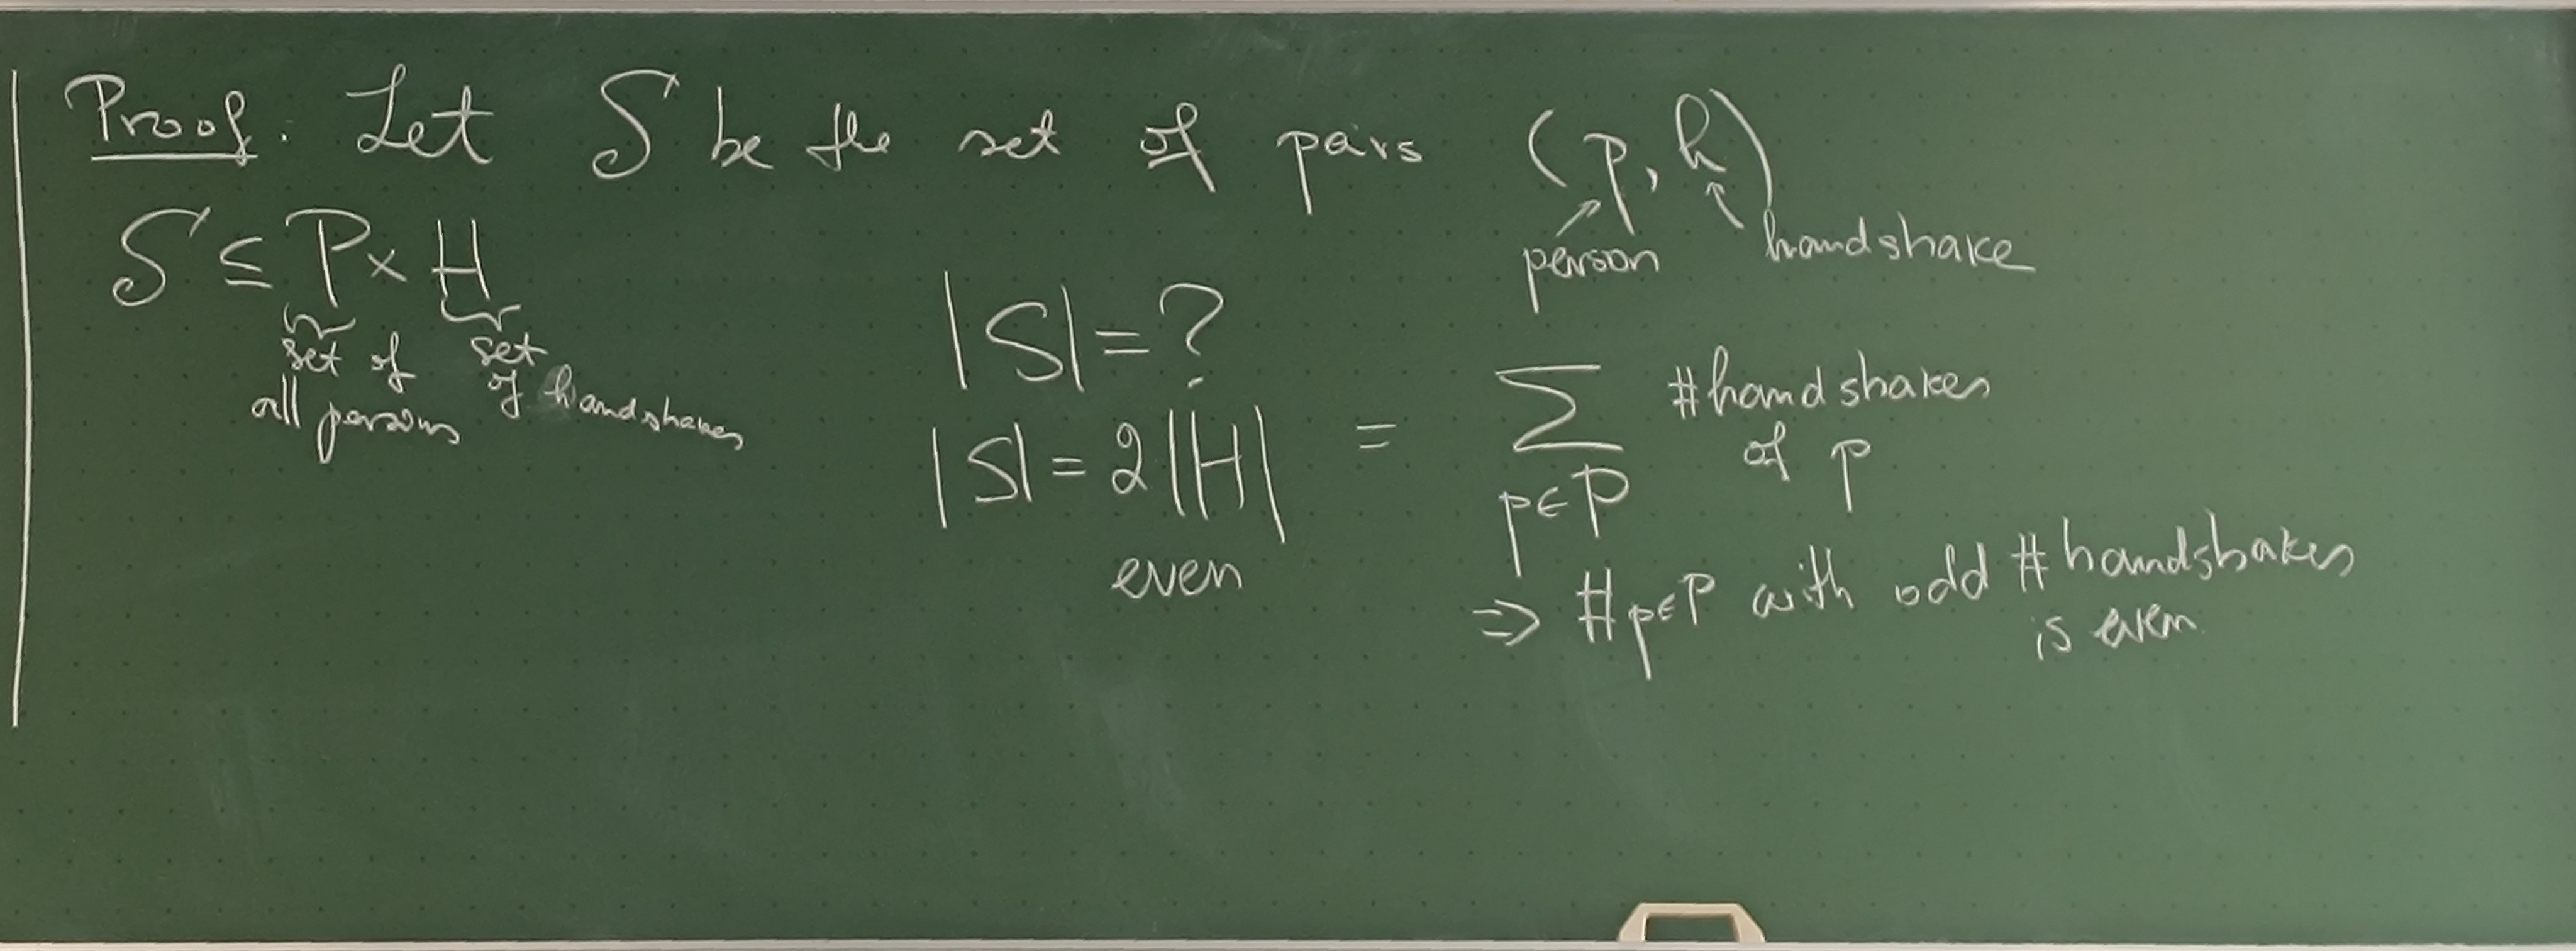 Proof. Let S be the set of pairs (p, h)
person
handshake
S ⊆ P × H
set of all persons
set of handshakes
|S| = ?
|S| = 2|H| = ∑ #handshakes of p
p∈P
even
⇒ #p∈P with odd #handshakes
is even